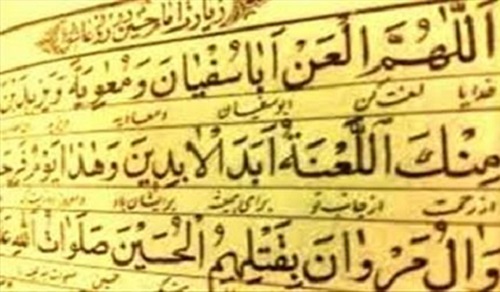 حسین
اَللّٰهُمَّ الْعَنْ اَبٰا سُفْيٰانَ وَ مُعٰوِيَةَ وَ يَزيدَ بْنَ
خدایا لعنت کن ابوسفیان و معاویه
مِنْكَ اللَّعْنَةُ اَبَدَ الْاٰبِدينَ وَ هٰذٰا يَوْمٌ فَرِحَ
از جانب تو برای همیشه برایشان باد
وَ اٰلُ مَرْوٰانَ بِقَتْلِهِمُ الْحُسَيْنَ صَلَوٰاتُ اللّٰهِ